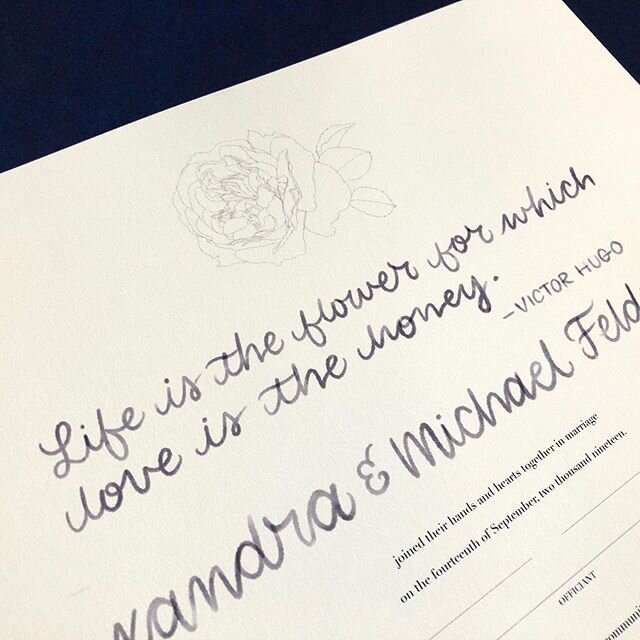 Life is the flower for which
love is the honey.
—VICTOR HUGO
xandra & Michael Feld
joined their hands and hearts together in marriage
on the fourteenth of September, two thousand nineteen.
OFFICIANT
communi